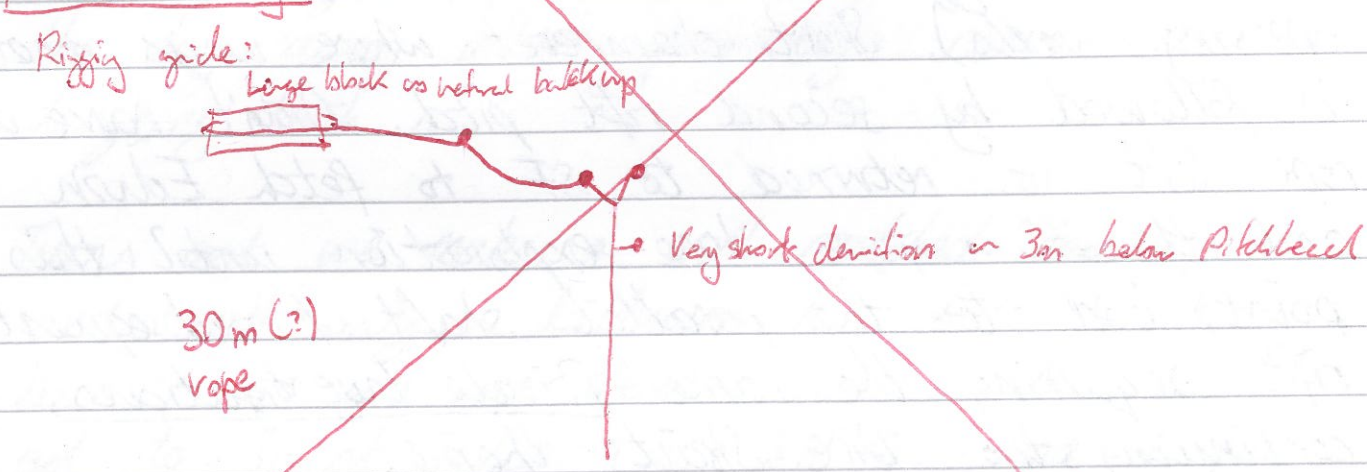 Rigging guide:
Large block as natural backup
Very short deviation ~ 3m below Pitchhead
30m (?)
rope